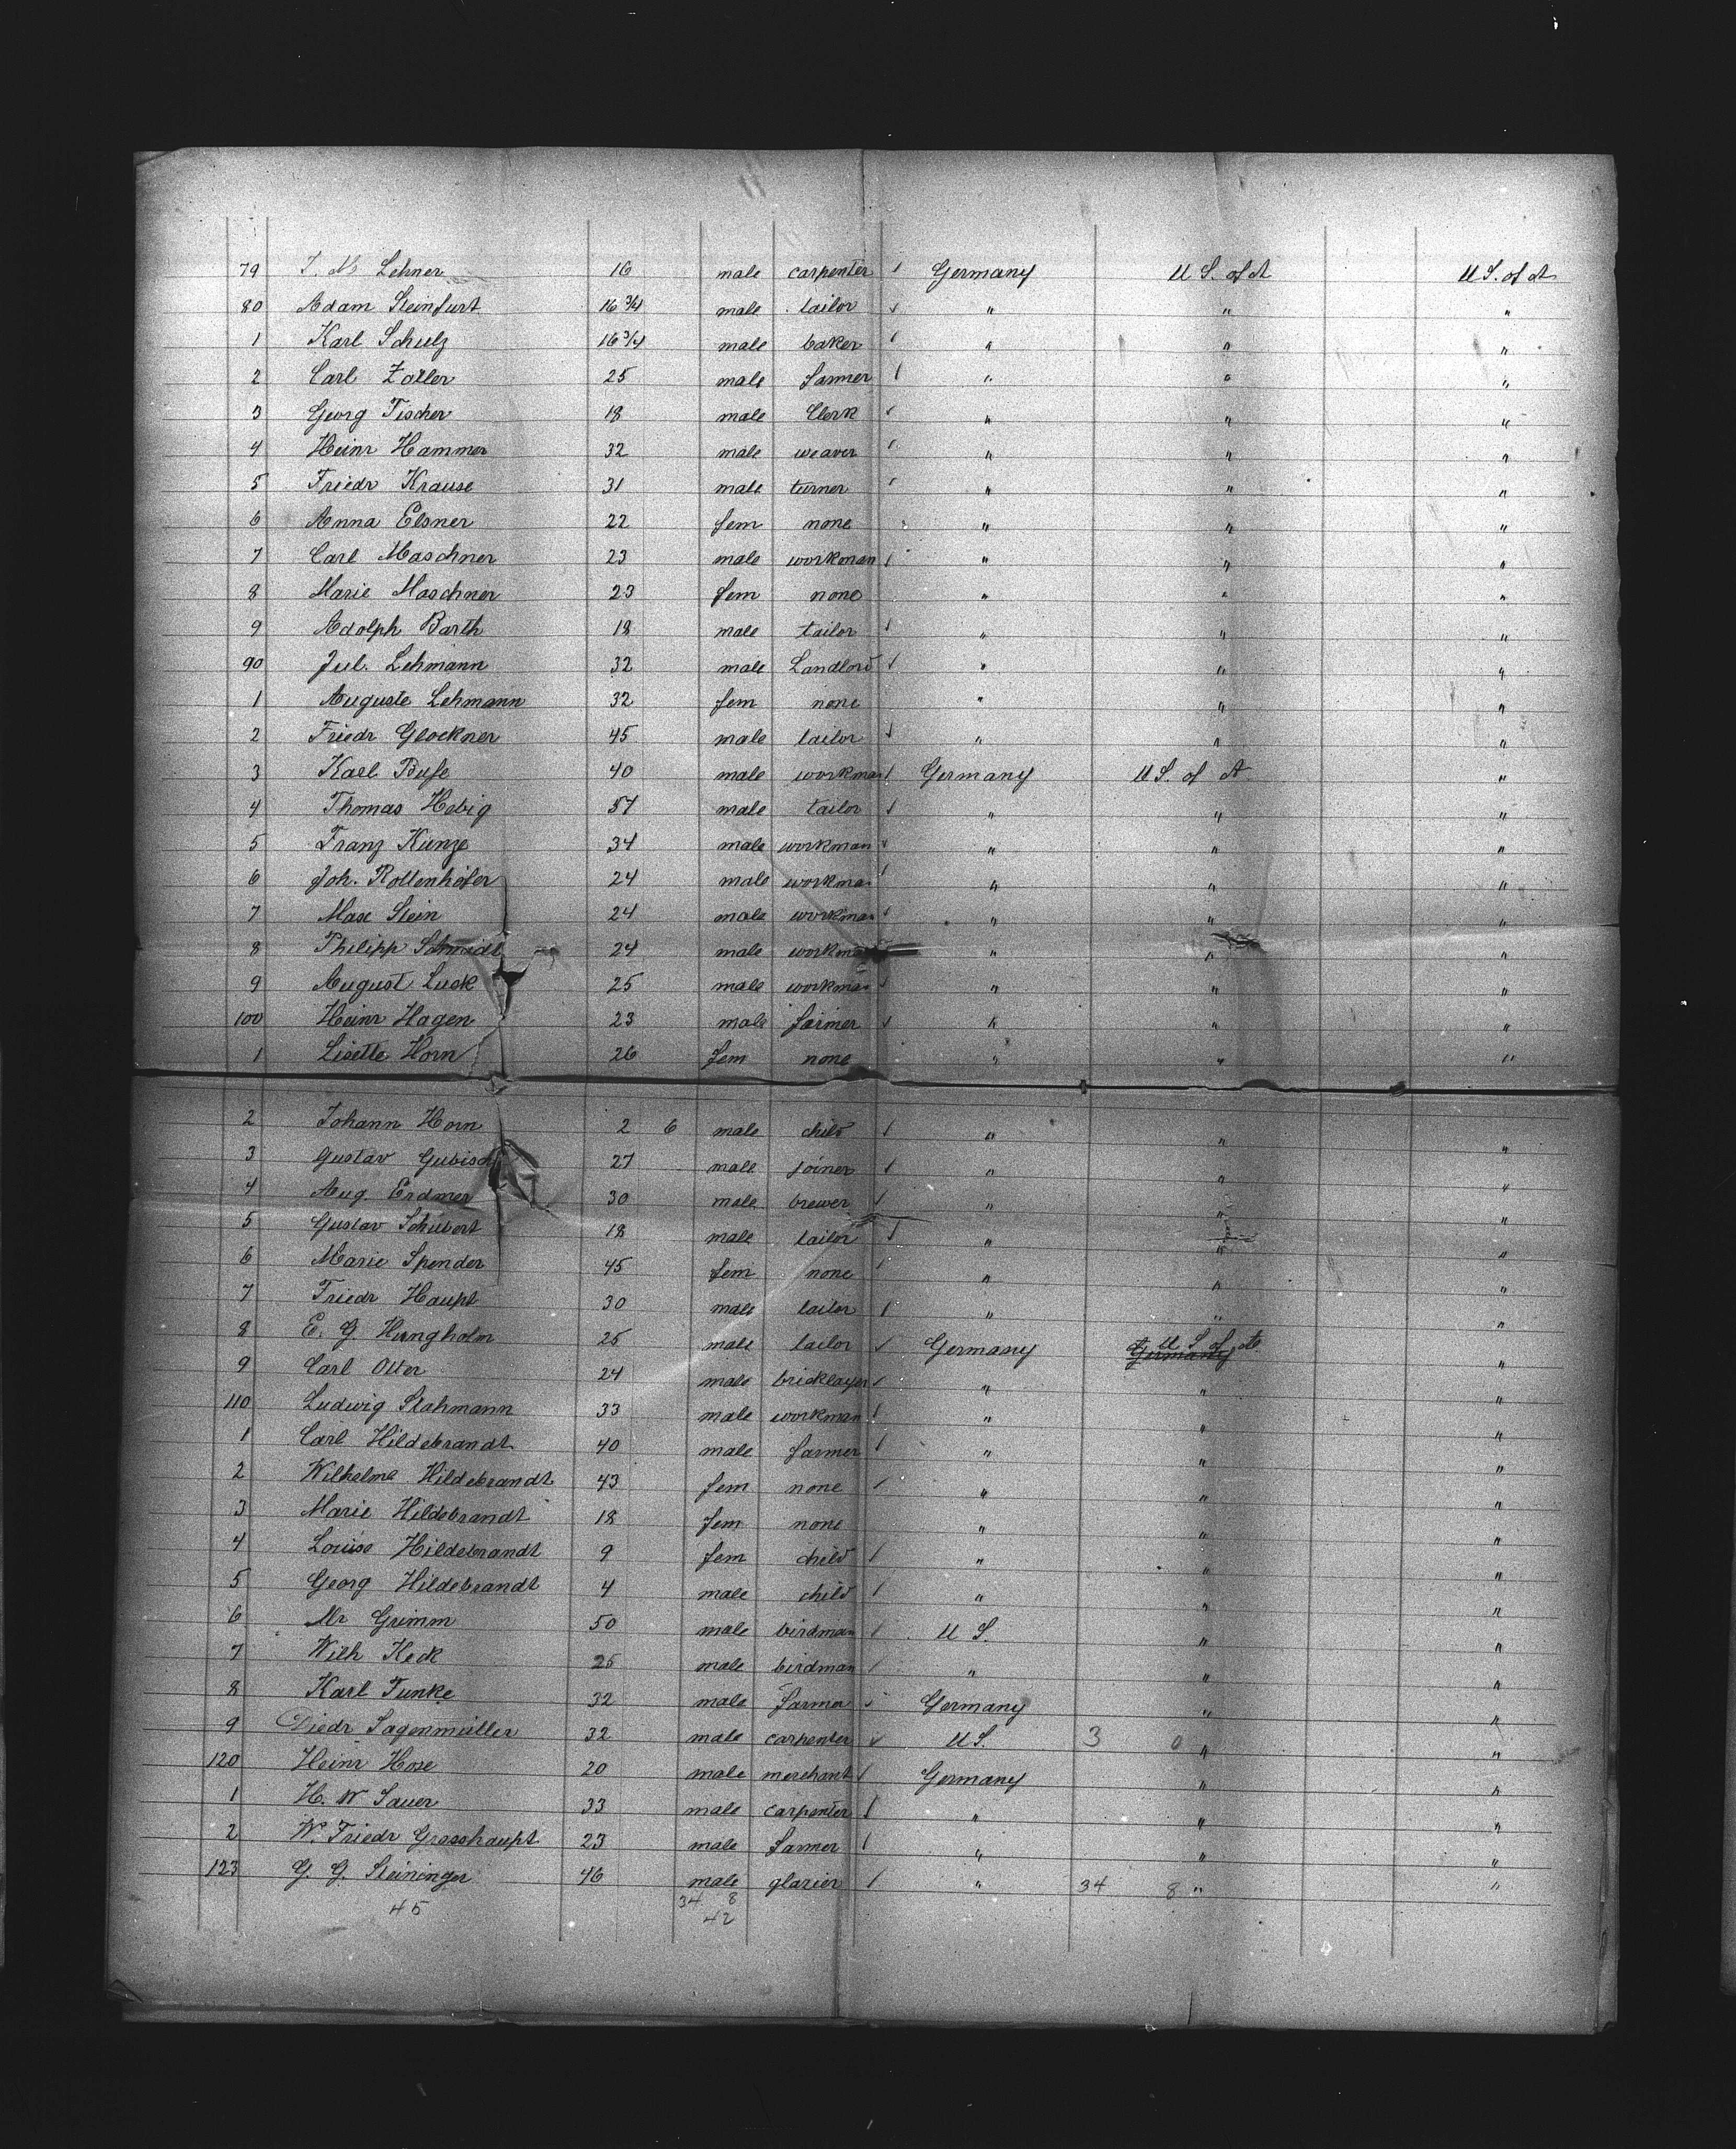 79 J. M. Lehner 16 male carpenter Germany U S. of A U S. of A
80 Adam Steinfurt 16 3/4 male tailor " " "
1 Karl Schulz 16 3/4 male baker " " "
2 Carl Zoller 25 male farmer " " "
3 Georg Fischer 18 male Clerk " " "
4 Heinr Hammer 32 male weaver " " "
5 Friedr Krause 31 male turner " " "
6 Anna Elsner 22 fem none " " "
7 Carl Maschner 23 male workman " " "
8 Marie Maschner 23 fem none " " "
9 Adolph Barth 18 male tailor " " "
90 Jul. Lehmann 32 male Landlord " " "
1 Auguste Lehmann 32 fem none " " "
2 Friedr Glockner 45 male tailor " " "
3 Karl Buse 40 male workman Germany U S. of A "
4 Thomas Hebig 57 male tailor " " "
5 Franz Kunze 34 male workman " " "
6 Joh. Rottenhöfer 24 male workman " " "
7 Max Stein 24 male workman " " "
8 Philipp Schmidt 24 male workman " " "
9 August Luck 25 male workman " " "
100 Heinr Hagen 23 male farmer " " "
1 Lisette Horn 26 fem none " " "
2 Johann Horn 2 6 male child " " "
3 Gustav Gubisch 27 male joiner " " "
4 Aug. Erdmer 30 male brewer " " "
5 Gustav Schubert 18 male tailor " " "
6 Marie Spender 45 fem none " " "
7 Friedr Haupt 30 male tailor " " "
8 E. G. Hungholm 25 male tailor Germany Germany U S of A "
9 Carl Otter 24 male bricklayer " " "
110 Ludwig Stahmann 33 male workman " " "
1 Carl Hildebrandt 40 male farmer " " "
2 Wilhelme Hildebrandt 43 fem none " " "
3 Marie Hildebrandt 18 fem none " " "
4 Louise Hildebrandt 9 fem child " " "
5 Georg Hildebrandt 4 male child " " "
6 Mr Grimm 50 male birdman U S. " "
7 Wilh Keck 25 male birdman " " "
8 Karl Funke 32 male farmer Germany " "
9 Diedr Sagenmüller 32 male carpenter U S. 3 0 " "
120 Heinr Hose 20 male merchant Germany " "
1 H. W Sauer 33 male carpenter " " "
2 W. Friedr Grosshaupt 23 male farmer " " "
123 G. G. Steininger 46 male glazier " 34 8 " "
45 34 8
42